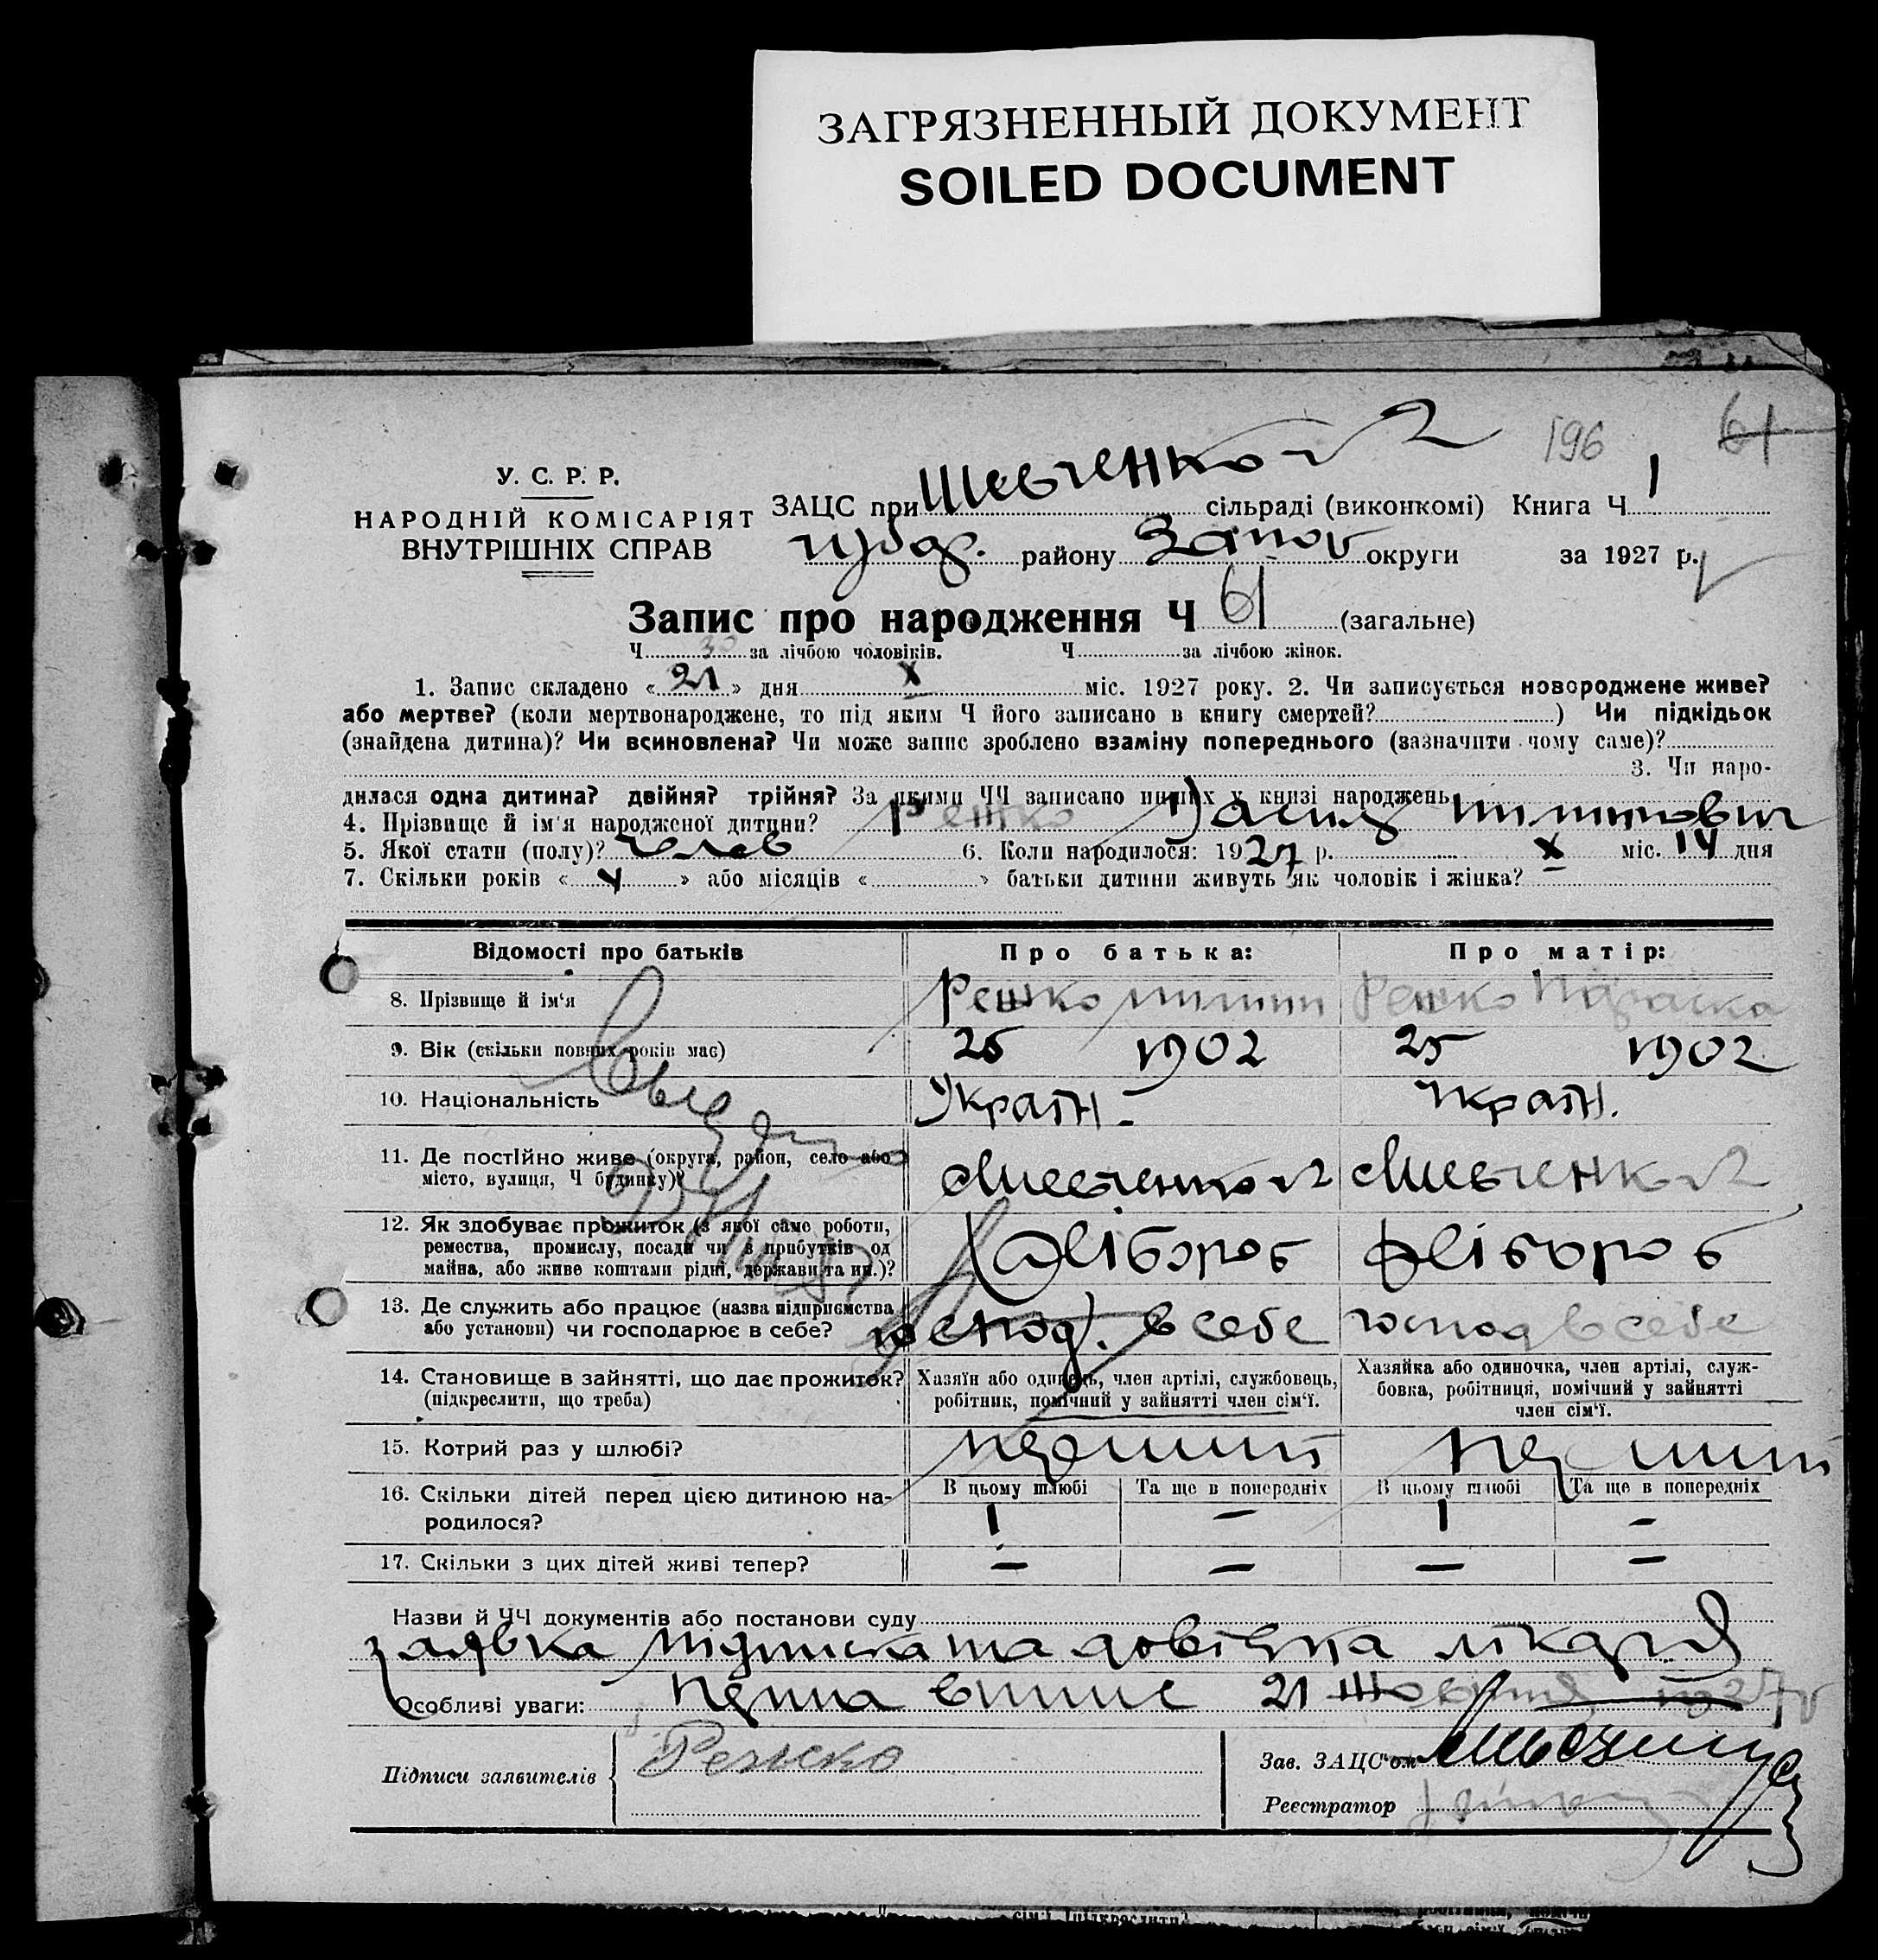 ЗАГРЯЗНЕННЫЙ ДОКУМЕНТ
SOILED DOCUMENT
196 61
У. С. Р. Р.
НАРОДНІЙ КОМІСАРІЯТ
ВНУТРІШНІХ СПРАВ
ЗАЦС при сільраді (виконкомі) Книга Ч 1
району Запор округи за 1927 р.
Запис про народження Ч 61 (загальне)
Ч 30 за лічбою чоловіків. Ч за лічбою жінок.
1. Запис складено « 21 » дня X міс. 1927 року. 2. Чи записується новороджене живе?
або мертве? (коли мертвонароджене, то під яким Ч його записано в книгу смертей? ) Чи підкідьок
(знайдена дитина)? Чи всиновлена? Чи може запис зроблено взаміну попереднього (зазначити чому саме)?
3. Чи наро-
дилася одна дитина? двійня? трійня? За якими ЧЧ записано инших у книзі народжень
4. Прізвище й ім'я народженої дитини? Решко
5. Якої стати (полу)? чолов 6. Коли народилося: 1927 р. X міс. 14 дня
7. Скільки років « 4 » або місяців « » батьки дитини живуть як чоловік і жінка?
Відомості про батьків Про батька: Про матір:
8. Прізвище й ім'я Решко Решко Параска
9. Вік (скільки повних років має) 25 1902 25 1902
10. Національність Україн. Україн.
11. Де постійно живе (округа, район, село або
місто, вулиця, Ч будинку)?
12. Як здобуває прожиток (з якої саме роботи,
ремества, промислу, посади чи з прибутків од
майна, або живе коштами рідні, держави та ин.)?
хлібороб хлібороб
13. Де служить або працює (назва підприємства
або установи) чи господарює в себе?
господ. в себе господ в себе
14. Становище в зайнятті, що дає прожиток?
(підкреслити, що треба)
Хазяїн або одинець, член артілі, службовець,
робітник, помічний у зайнятті член сім'ї.
Хазяйка або одиночка, член артілі, служ-
бовка, робітниця, помічний у зайнятті
член сім'ї.
15. Котрий раз у шлюбі? перший перший
16. Скільки дітей перед цією дитиною на-
родилося?
В цьому шлюбі Та ще в попередніх В цьому шлюбі Та ще в попередніх
1 – 1 –
17. Скільки з цих дітей живі тепер? – – – –
Назви й ЧЧ документів або постанови суду
заявка підписка та довідка лікаря
Особливі уваги: 21 жовтня 1927 р
Підписи заявителів Решко
Зав. ЗАЦС'ом
Реєстратор